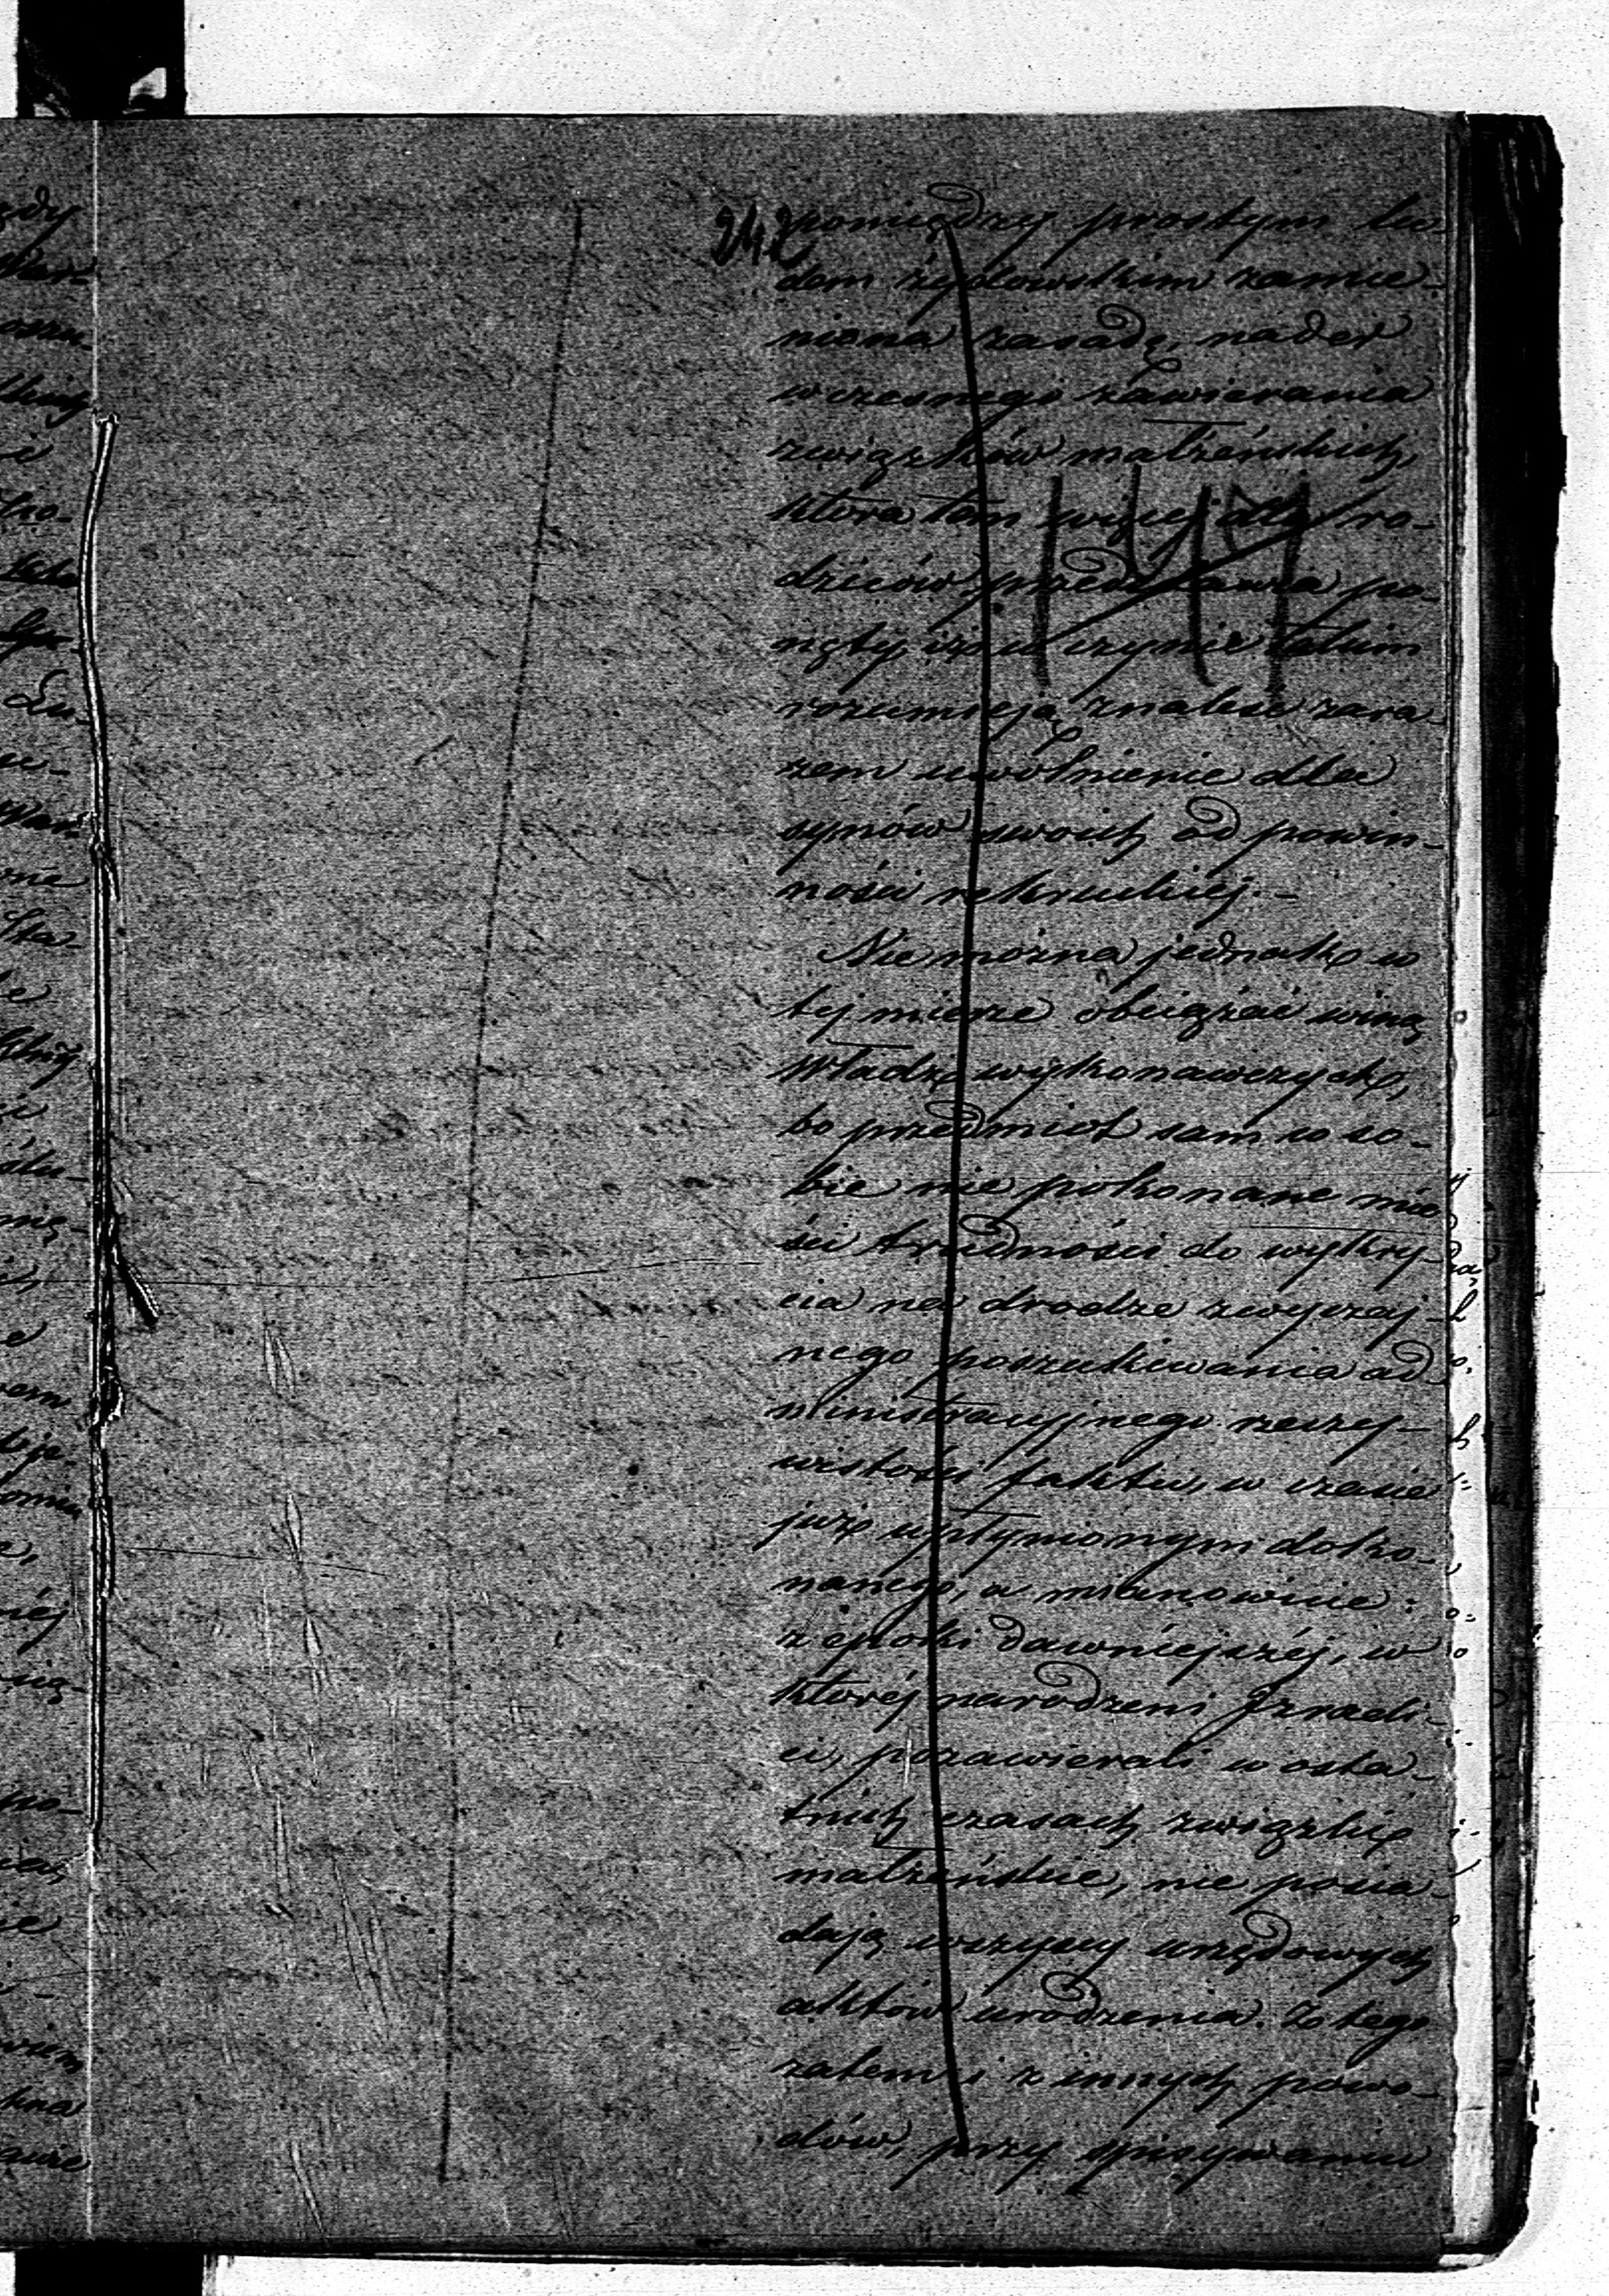 242
pomiędzy prostym lu-
dem żydowskim zamie-
niona zasadę, nader
wczesnego zawierania
związków małżeńskich,
która tem więcej dla ro-
dziców przedstawia po-
nęty, iż w czynie takim
rozumieją znaleść zara-
zem uwolnienie dla
synów swoich od powin-
ności rekruckiej. –
Nie można jednak w
tej mierze obciążać winą
Władz wykonawczych,
bo przedmiot sam w so-
bie nie pokonane mie
ści trudności do wykry-
cia na drodze zwyczaj-
nego poszukiwania ad
ministracyjnego rzeczy-
wistości faktu, w czasie
już upłynionym doko-
nanego, a mianowicie:
z epoki dawniejszéj, w
któréj narodzeni Izraeli-
ci, pozawierali w osta-
tnich czasach związki
małżeńskie, nie posia-
dają wszyscy urzędowych
aktów urodzenia. Z tego
zatem i z innych powo-
dów, przy spisywaniu